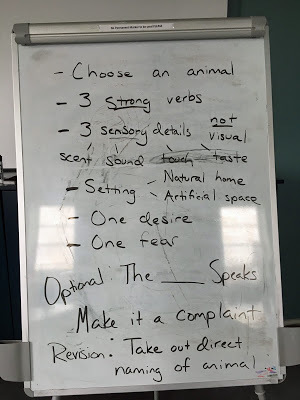 - Choose an animal
- 3 strong verbs
- 3 sensory details not visual
scent sound touch taste
- Setting - Natural home
- Artificial space
- One desire
- One fear
Optional: The ____ Speaks
Make it a complaint
Revision: Take out direct
naming of animal